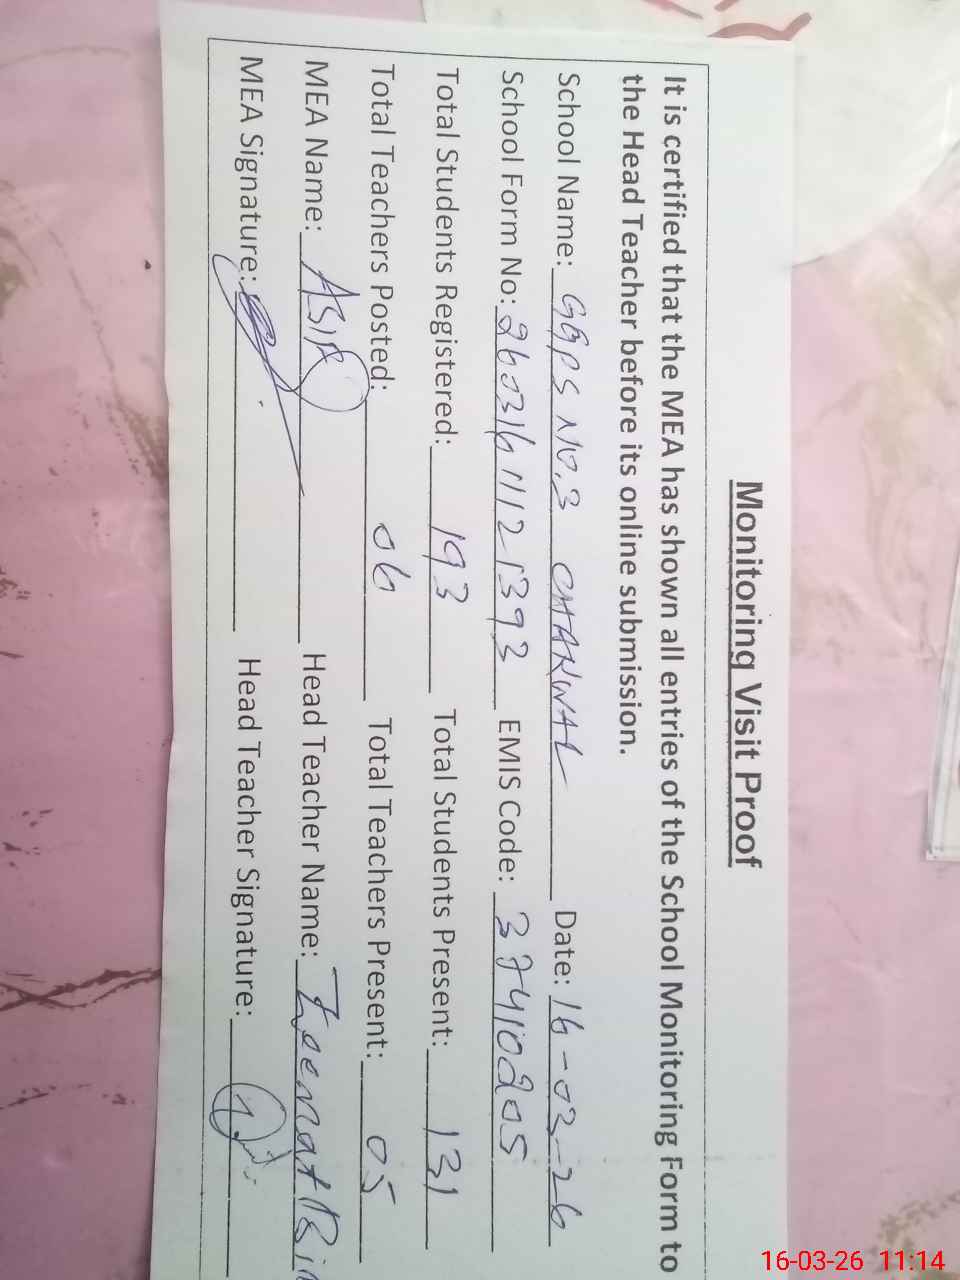 Monitoring Visit Proof
It is certified that the MEA has shown all entries of the School Monitoring Form to
the Head Teacher before its online submission.
School Name: GGPS NO.3 CHANWAL Date: 16-03-26
School Form No: 26031611121393 EMIS Code: 37410205
Total Students Registered: 193 Total Students Present: 131
Total Teachers Posted: 06 Total Teachers Present: 05
MEA Name: ASIF Head Teacher Name: Zeenat
MEA Signature: Head Teacher Signature:
16-03-26 11:14